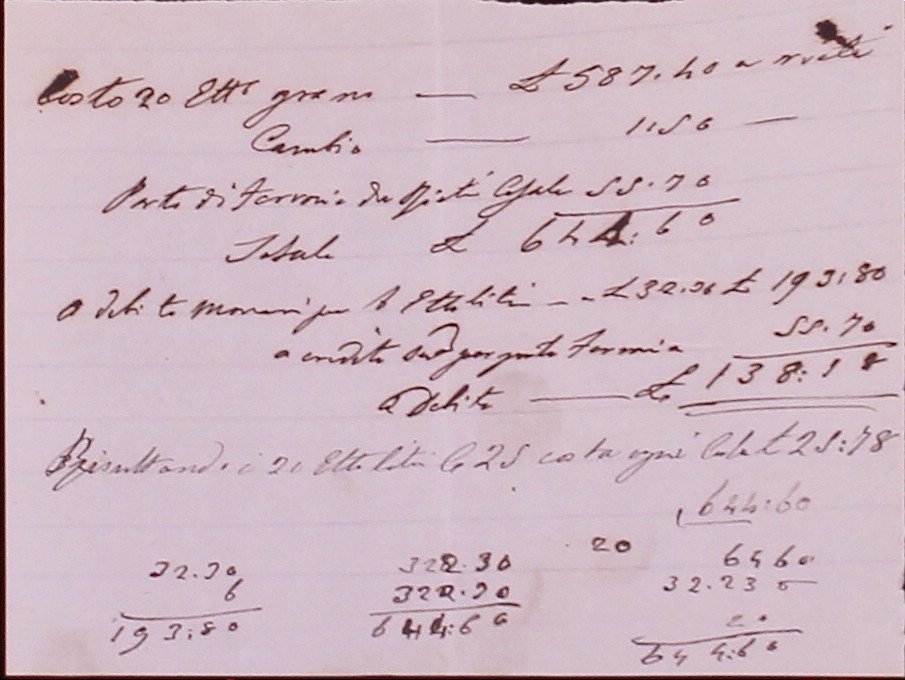 Costo 20 Ett.i grano — £ 587.40 a rvati
Cambio — 1:50 —
Porto di Ferrovia da Casale 55.70
Totale £ 644:60
A debito per 6 Ettolitri — a £ 32.30 £ 193:80
a credito porto Ferrovia 55.70
a Debito — £ 138:18
Risultando i 20 Ettolitri 25 costa ogni £ 25:78
644:60
32.30
6
193:80
322.30
322.30
644:60
20
6460
32.23 0
20
644:60